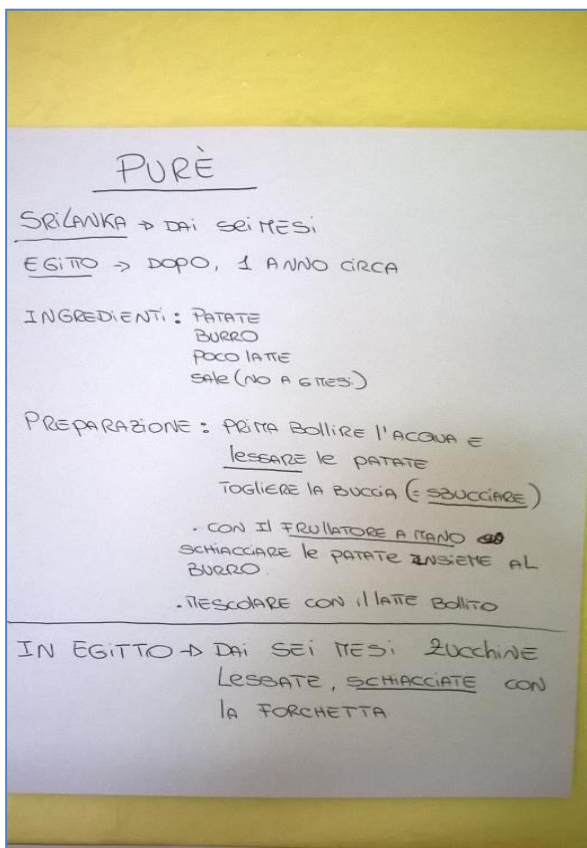 PURÈ
SRILANKA → DAI SEI MESI
EGITTO → DOPO, 1 ANNO CIRCA
INGREDIENTI: PATATE
BURRO
POCO LATTE
SALE (NO A 6 MESI)
PREPARAZIONE: PRIMA BOLLIRE L'ACQUA E
LESSARE LE PATATE
TOGLIERE LA BUCCIA (= SBUCCIARE)
. CON IL FRULLATORE A MANO
SCHIACCIARE LE PATATE INSIEME AL
BURRO.
. MESCOLARE CON IL LATTE BOLLITO
IN EGITTO → DAI SEI MESI ZUCCHINE
LESSATE, SCHIACCIATE CON
LA FORCHETTA